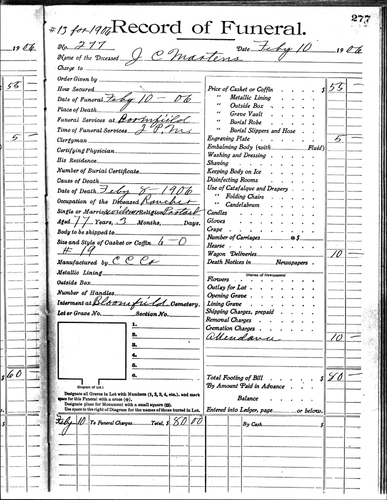 277
#13 for 1906
Record of Funeral.
1906
No. 277 Date Feby 10 1906
Name of the Deceased J C Martens
Charge to
Order Given by
How Secured
Date of Funeral Feby 10 - 06
Place of Death
Funeral Services at Bloomfield
Time of Funeral Services 1 P M.
Clergyman
Certifying Physician
His Residence
Number of Burial Certificate
Cause of Death
Date of Death Feby 8 - 1906
Occupation of the Deceased Rancher
Single or Married widower Religion
Aged 77 Years, 2 Months, Days.
Body to be shipped to
Size and Style of Casket or Coffin 6-0
#19
Manufactured by C C Co
Metallic Lining
Outside Box
Number of Handles
Interment at Bloomfield Cemetery,
Lot or Grave No. Section No.
1.
2.
3.
4.
5.
6.
(Diagram of Lot.)
Designate all Graves in Lot with Numbers (1, 2, 3, 4, etc.), and mark
space for this Funeral with a cross (+).
Designate place for Monument with a small square (□).
Use space to the right of Diagram for the names of those buried in Lot.
Feby 10 To Funeral Charges Total, $ 80 00
Price of Casket or Coffin $ 55 -
" Metallic Lining
" Outside Box
" Grave Vault
" Burial Robe
" Burial Slippers and Hose
Engraving Plate 5 -
Embalming Body (with Fluid)
Washing and Dressing
Shaving
Keeping Body on Ice
Disinfecting Rooms
Use of Catafalque and Drapery
" Folding Chairs
" Candelabrum
Candles
Gloves
Crape
Number of Carriages @ $
Hearse
Wagon Deliveries 10 -
Death Notices in Newspapers
(Names of Newspapers)
Flowers
Outlay for Lot
Opening Grave
Lining Grave
Shipping Charges, prepaid
Removal Charges
Cremation Charges
Attendance 10 -
Total Footing of Bill $ 80 -
By Amount Paid in Advance
Balance
Entered into Ledger, page or below.
By Cash $
56 -
5 -
$ 60